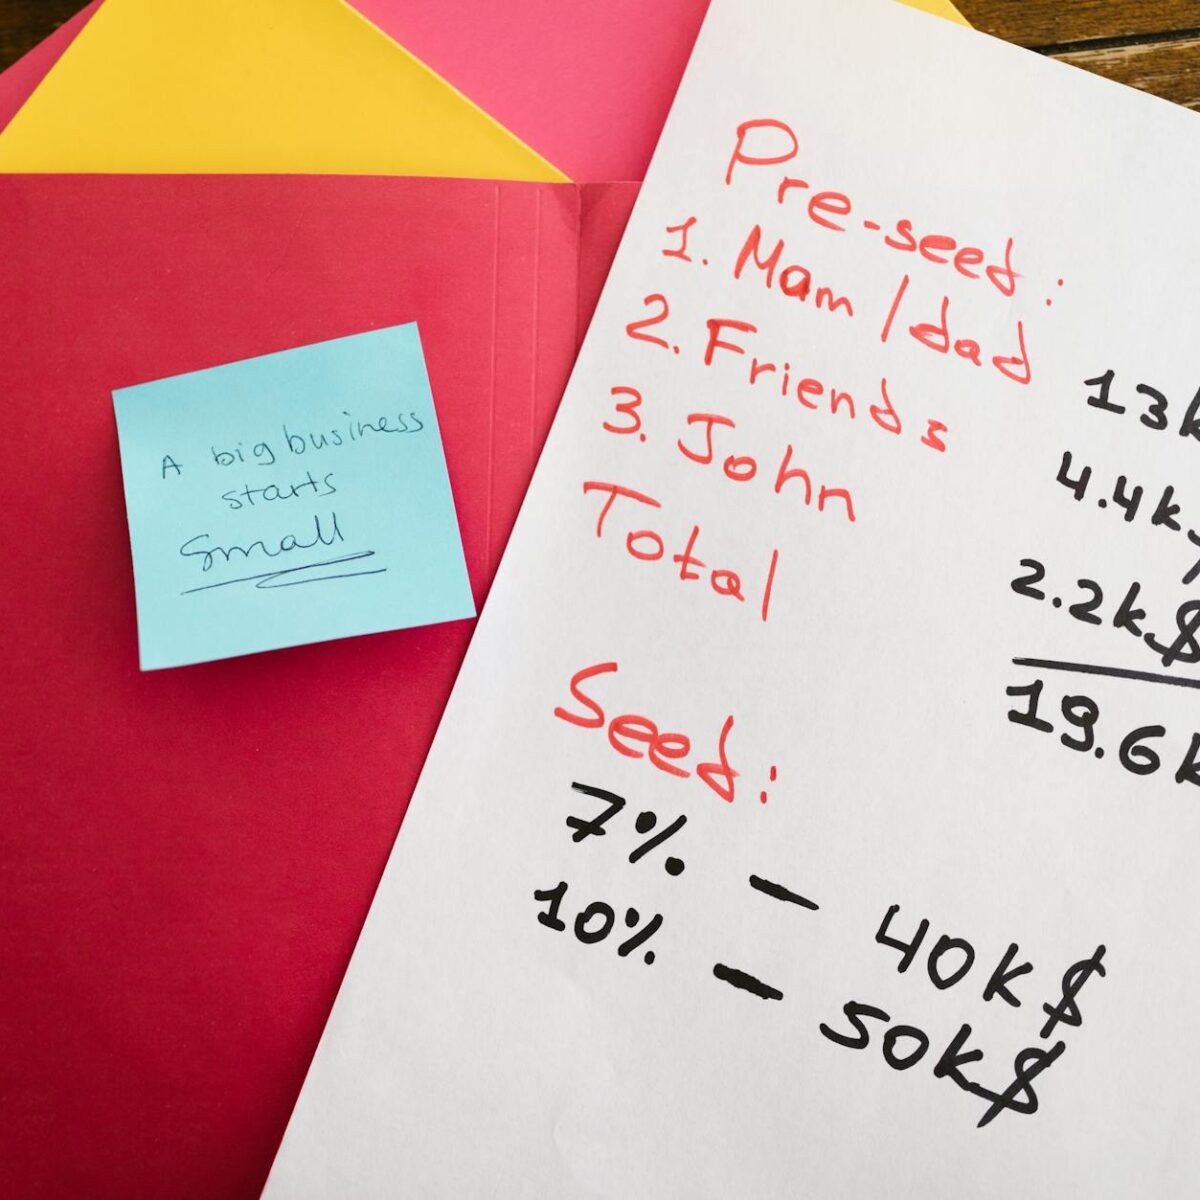 A big business
starts
Small
Pre-seed:
1. Mam/dad 13k
2. Friends 4.4k
3. John 2.2k$
Total 19.6k
Seed:
7% - 40k$
10% - 50k$